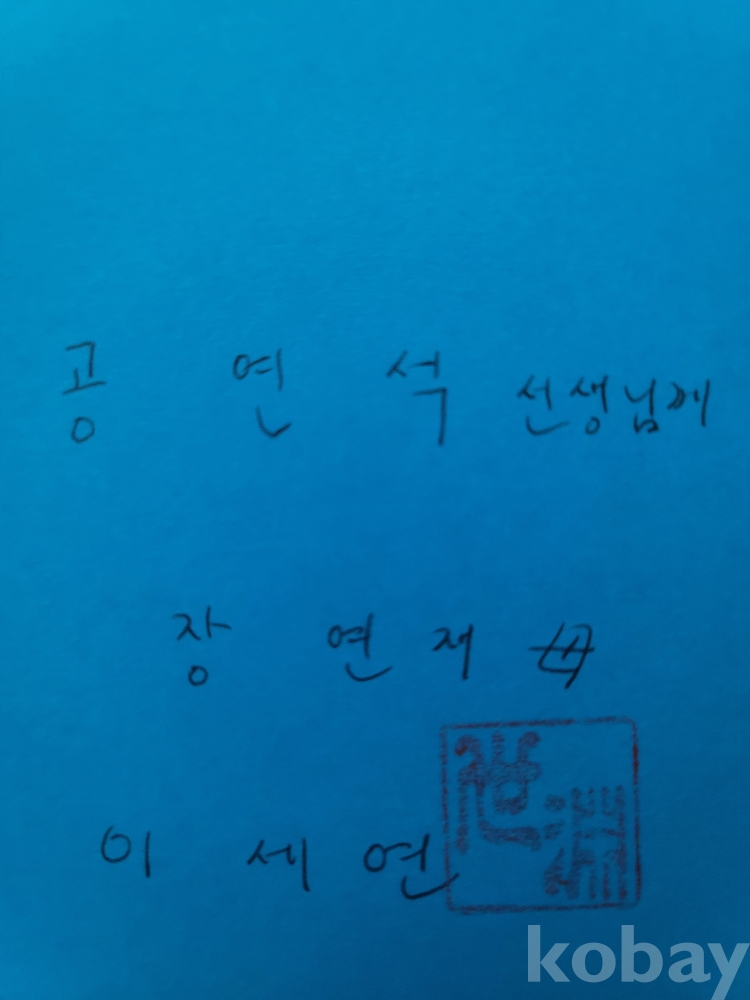 공 연 석 선생님께
장 연재 母
이 세 연
kobay